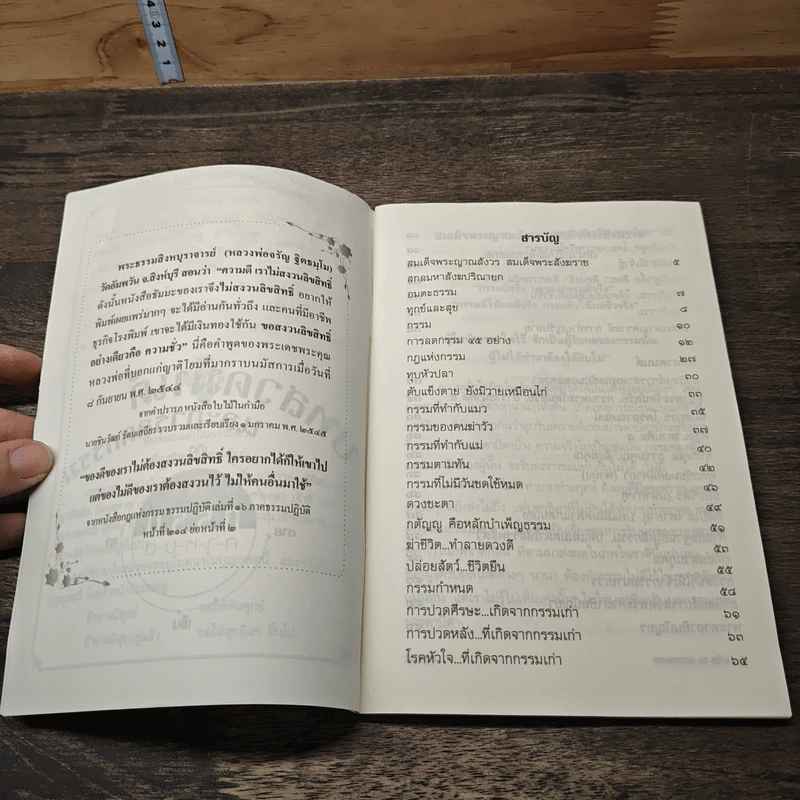 พระธรรมสิงหบุราจารย์ (หลวงพ่อจรัญ ฐิตธมฺโม)
วัดอัมพวัน จ.สิงห์บุรี สอนว่า “ความดี เราไม่สงวนลิขสิทธิ์
ดังนั้นหนังสือธัมมะของเราจึงไม่สงวนลิขสิทธิ์ อยากให้
พิมพ์เผยแพร่มากๆ จะได้มีอ่านกันทั่วถึง และคนที่มีอาชีพ
ธุรกิจโรงพิมพ์ เขาจะได้มีเงินทองใช้กัน ขอสงวนลิขสิทธิ์
อย่างเดียวคือ ความชั่ว” นี่คือคำพูดของพระเดชพระคุณ
หลวงพ่อที่บอกแก่ญาติโยมที่มากราบนมัสการเมื่อวันที่
๘ กันยายน พ.ศ. ๒๕๔๔
จากคำปรารภ หนังสือใบไม้ในกำมือ
นายชินวัฒก์ รัตนเสถียร รวบรวมและเรียบเรียง ๑ มกราคม พ.ศ. ๒๕๔๕
“ของดีของเราไม่ต้องสงวนลิขสิทธิ์ ใครอยากได้ก็ให้เขาไป
แต่ของไม่ดีของเราต้องสงวนไว้ ไม่ให้คนอื่นมาใช้”
จากหนังสือกฎแห่งกรรม ธรรมปฏิบัติ เล่มที่ ๑๖ ภาคธรรมปฏิบัติ
หน้าที่ ๒๑๔ ย่อหน้าที่ ๒
สารบัญ
สมเด็จพระญาณสังวร สมเด็จพระสังฆราช ๕
สกลมหาสังฆปริณายก
อมตะธรรม ๗
ทุกข์และสุข ๘
กรรม ๑๐
การลดกรรม ๔๕ อย่าง ๑๒
กฎแห่งกรรม ๒๗
ทุบหัวปลา ๓๐
ตับแข็งตาย ยังมิวายเหมือนไก่ ๓๓
กรรมที่ทำกับแมว ๓๕
กรรมของคนฆ่าวัว ๓๗
กรรมที่ทำกับแม่ ๔๐
กรรมตามทัน ๔๒
กรรมที่ไม่มีวันชดใช้หมด ๔๖
ดวงชะตา ๔๙
กตัญญู คือหลักบำเพ็ญธรรม ๕๑
ฆ่าชีวิต...ทำลายดวงดี ๕๓
ปล่อยสัตว์...ชีวิตยืน ๕๕
กรรมกำหนด ๕๘
การปวดศีรษะ...เกิดจากกรรมเก่า ๖๑
การปวดหลัง...ที่เกิดจากกรรมเก่า ๖๓
โรคหัวใจ...ที่เกิดจากกรรมเก่า ๖๕
4
3
2
1